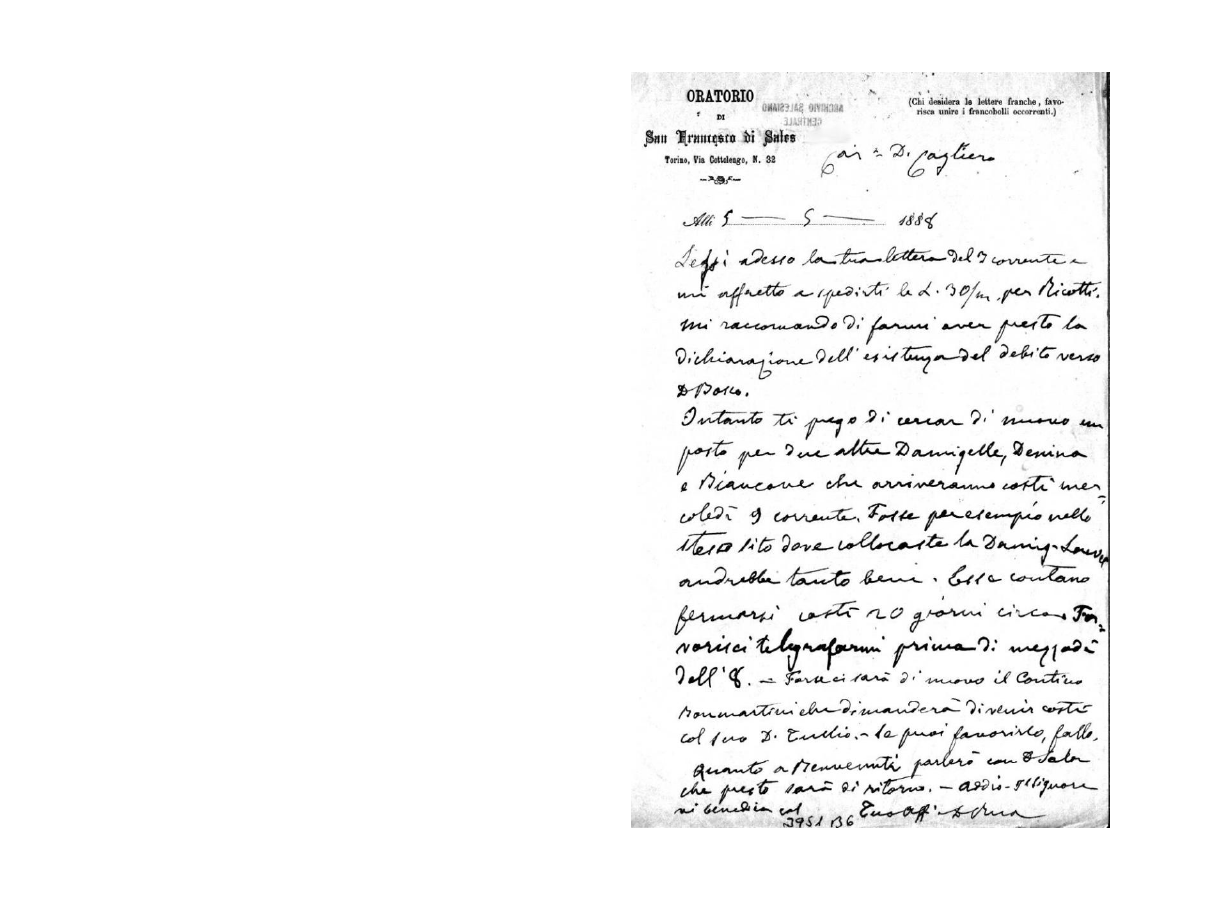 ORATORIO
DI
San Francesco di Sales
Torino, Via Cottolengo, N. 32
ARCHIVIO SALESIANO
CENTRALE
(Chi desidera le lettere franche, favo-
risca unire i francobolli occorrenti.)
Car = D. Cagliero
Alli 5 — 5 — 1888
Leggi adesso la tua lettera del 3 corrente e
mi affretto a spedirti le L. 30/m per Ricotti.
Mi raccomando di farmi aver presto la
dichiarazione dell'esistenza del debito verso
D Bosco.
Intanto ti prego di cercar di nuovo un
posto per due altre Damigelle, Denina
e Biancone che arriveranno costì mer=
coledì 9 corrente. Fosse per esempio nello
stesso sito dove collocaste la Damig.
andrebbe tanto bene. Esse contano
fermarsi costì 20 giorni circa. Fa=
vorisci telegrafarmi prima di mezzodì
dell'8. — Forse ci sarà di nuovo il Contino
Bonmartini che dimanderà di venir costì
col suo D. Tullio. — Se puoi favorirlo, fallo.
Quanto a Benvenuti parlerò con D
che presto sarà di ritorno. — Addio - Il Signore
vi benedica col Tuo Aff. D Rua
3951 B6